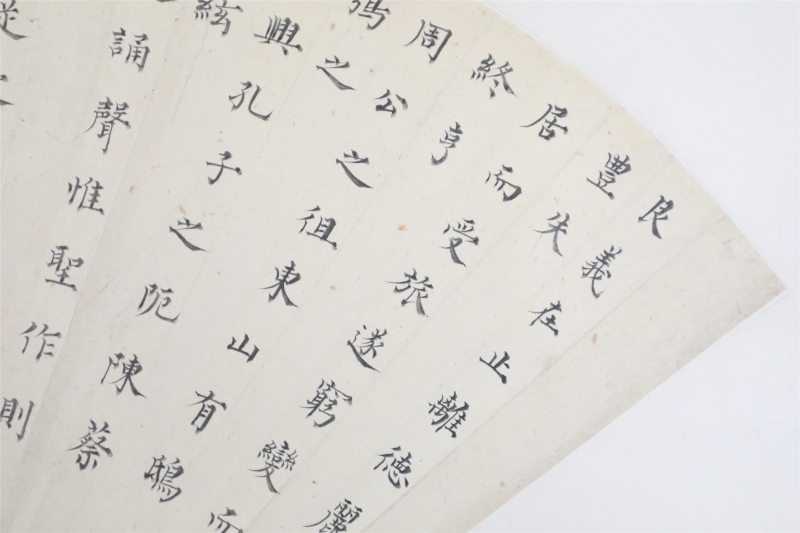 艮義在止離德麗
豐失
居而受旅遂窮變而
終亨
周公之徂東山有鴟
之
興孔子之阨陳蔡
絃
誦聲惟聖作則